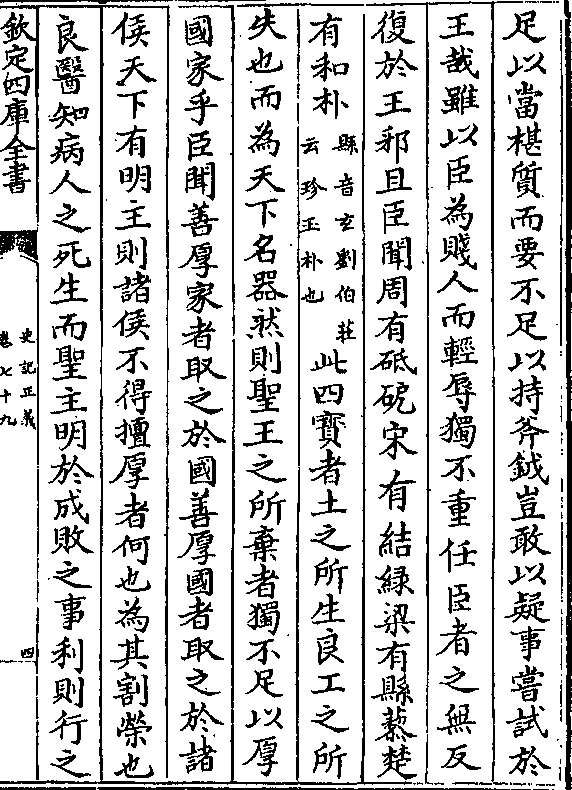 足以當椹質而要不足以持斧鉞豈敢以疑事嘗試於
王哉雖以臣為賤人而輕辱獨不重任臣者之無反
復於王邪且臣聞周有砥砨宋有結綠梁有縣藜楚
有和朴縣音玄劉伯莊云珍玉朴也此四寶者土之所生良工之所
失也而為天下名器然則聖王之所棄者獨不足以厚
國家乎臣聞善厚家者取之於國善厚國者取之於諸
侯天下有明主則諸侯不得擅厚者何也為其割榮也
良醫知病人之死生而聖主明於成敗之事利則行之
欽定四庫全書
史記正義
卷七十九
四